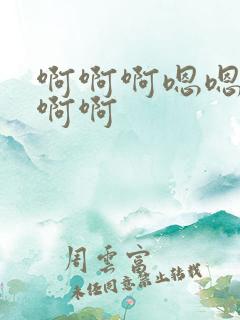 啊啊啊嗯嗯
啊啊
周云富
未经同意禁止转载